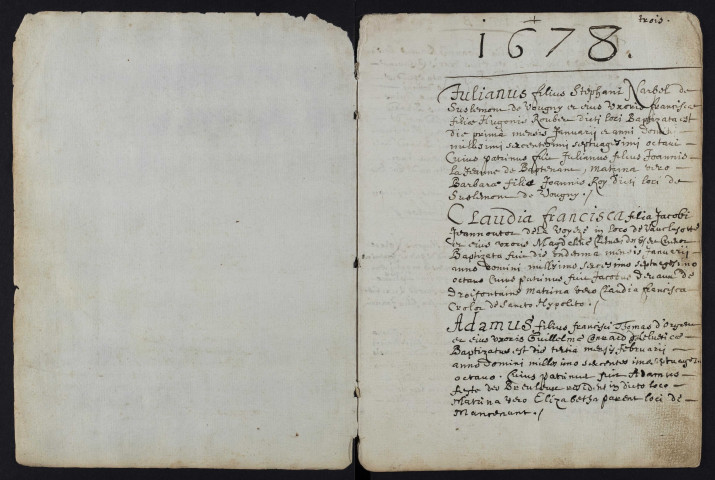 trois.
1678.
Julianus filius Stephani Narbel de
Suslemont de Vougny et eius uxoris francisce
filie Hugonis Rouber dicti loci Baptizatus est
die prima mensis Januarii anni Domini
millesimi sexcentesimi septuagesimi octavi
Cuius patrinus fuit Julianus filius Joannis
la Jeanne de Battenans, matrina vero
Barbara filia Joannis Roy dicti loci de
Suslemont de Vougny ./
Claudia francisca filia Jacobi
Jeannoutot de la Voyeze in loco de Vauclusotte
et eius uxoris Magdelene
Baptizata fuit die undecima mensis Januarii
anno Domini millesimo sexcentesimo septuagesimo
octavo Cuius patrinus fuit Jacobus de
Droitfontaine matrina vero Claudia francisca
de Sancto Hypolito ./
Adamus filius francisci Thomas d'
et eius uxoris Guillelme
Baptizatus est die tertia mensis februarii
anno Domini millesimo sexcentesimo septuagesimo
octavo. Cuius patrinus fuit Adamus
feste des Breuleux resident in dicto loco
Matrina vero Elizabetha parent loci de
Mancenans ./